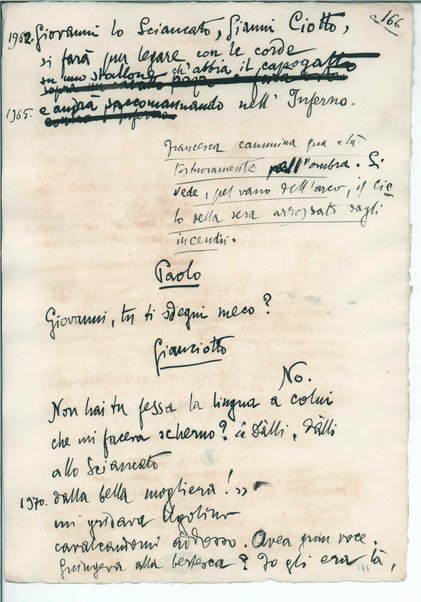 c. 166
1962. Giovanni lo Sciancato, Gianni Ciotto,
si farà pur legare con le corde
su uno stallone ch'abbia il capogatto
1965. e andrà saccomannando nell'Inferno.
Francesca cammina qua e là
tortuosamente nell'ombra. Si
vede, pel vano dell'arco, il cie-
lo della sera arrossato dagli
incendii.
Paolo
Giovanni, tu ti sdegni meco?
Gianciotto
No.
Non hai tu fessa la lingua a colui
che mi faceva scherno? « Dàlli, dàlli
allo Sciancato
1970. dalla bella mogliera! »
mi gridava Ugolino
cavalcandomi addosso. Avea gran voce.
Giungeva alla bertesca? Io gli era là,